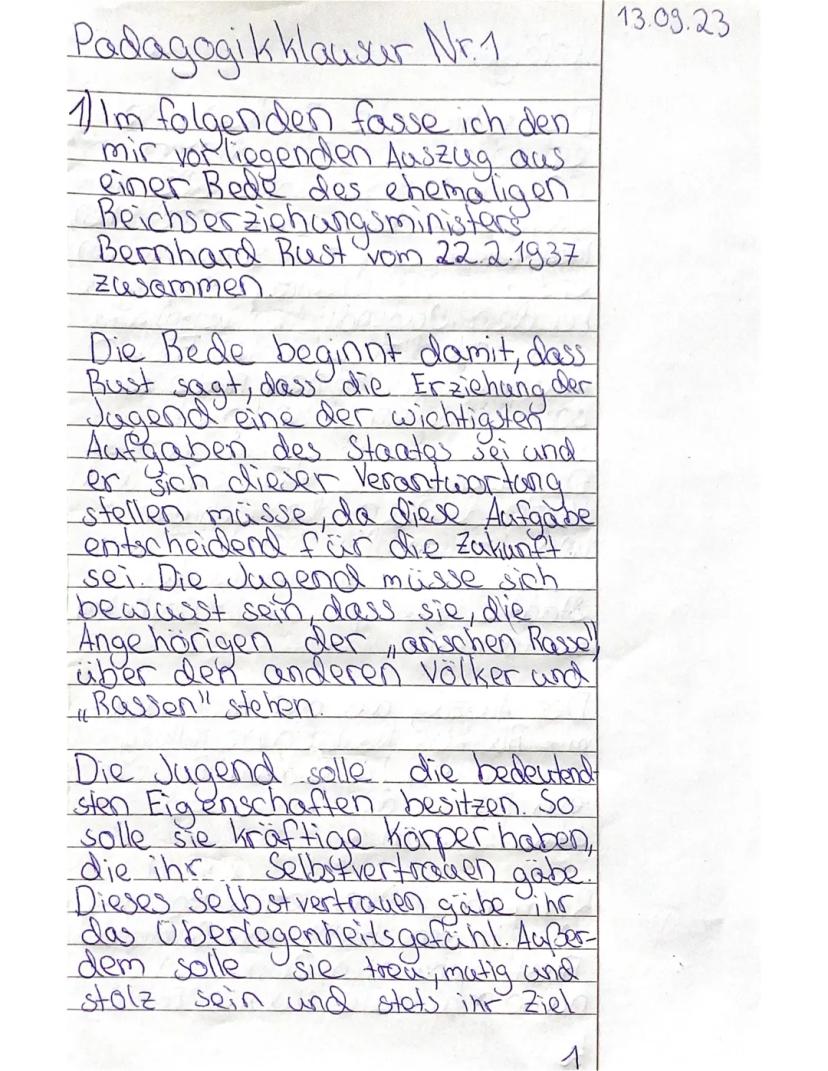 13.09.23
Pädagogikklausur Nr.1
1) Im folgenden fasse ich den
mir vorliegenden Auszug aus
einer Rede des ehemaligen
Reichserziehungsministers
Bernhard Rust vom 22.2.1937
zusammen.
Die Rede beginnt damit, dass
Rust sagt, dass die Erziehung der
Jugend eine der wichtigsten
Aufgaben des Staates sei und
er sich dieser Verantwortung
stellen müsse, da diese Aufgabe
entscheidend für die Zukunft
sei. Die Jugend müsse sich
bewusst sein, dass sie, die
Angehörigen der „arischen Rasse",
über den anderen Völker und
„Rassen" stehen.
Die Jugend solle die bedeutend-
sten Eigenschaften besitzen. So
solle sie kräftige Körper haben,
die ihr Selbstvertrauen gäbe.
Dieses Selbstvertrauen gäbe ihr
das Überlegenheitsgefühl. Außer-
dem solle sie treu, mutig und
stolz sein und stets ihr Ziel
1